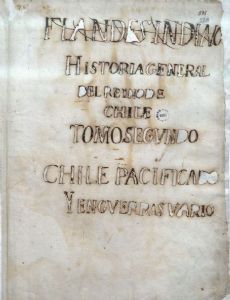 FLANDES INDIAC
HISTORIA GENERAL
DEL REYNO DE
CHILE
TOMO SEGUNDO
CHILE PACIFICADO
Y EN GUERRAS VARIO